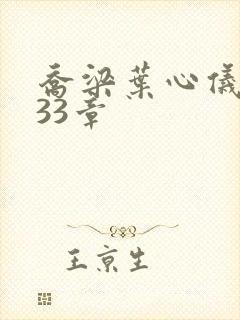 乔梁葉心儀
33章
王京生